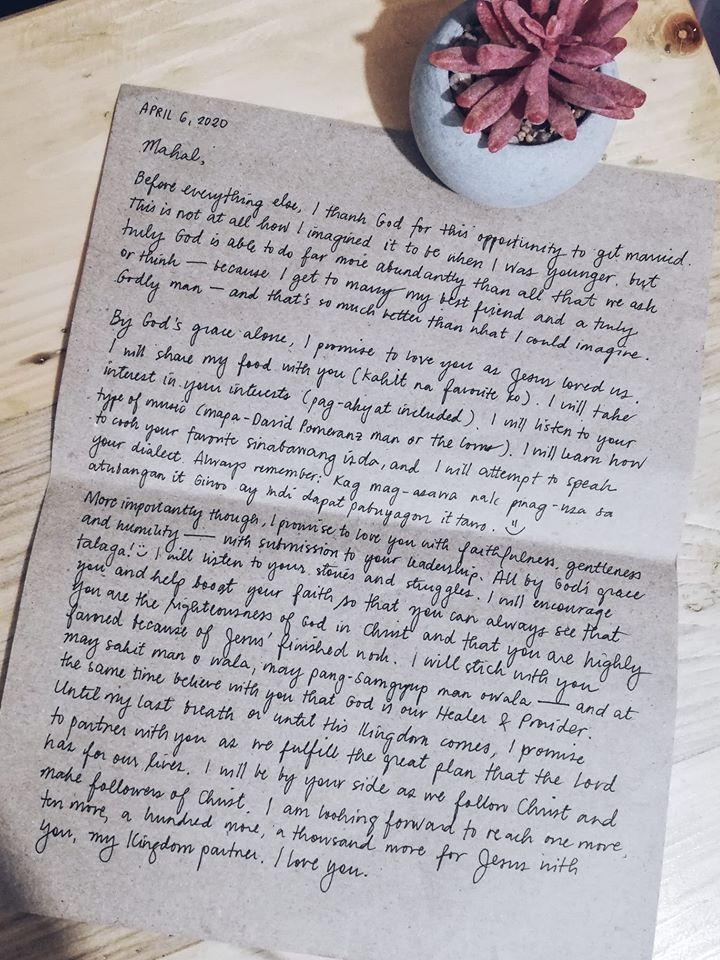 APRIL 6, 2020
Mahal,
Before everything else, I thank God for this opportunity to get married.
This is not at all how I imagined it to be when I was younger. but
truly God is able to do far more abundantly than all that we ask
or think — because I get to marry my best friend and a truly
Godly man — and that's so much better than what I could imagine.
By God's grace alone, I promise to love you as Jesus loved us.
I will share my food with you (kahit na favorite ko). I will take
interest in your interests (pag-akyat included). I will listen to your
type of music (mapa-David Pomeranz man or the). I will learn how
to cook your favorite sinabawang isda, and I will attempt to speak
your dialect. Always remember: Kag mag-asawa nak pinag-usa sa
atubangan it Ginoo ay indi dapat pabuyagon it tawo. :)
More importantly though, I promise to love you with faithfulness, gentleness
and humility — with submission to your leadership. All by God's grace
talaga! :) I will listen to your stories and struggles. I will encourage
you and help boost your faith so that you can always see that
you are the righteousness of God in Christ and that you are highly
favored because of Jesus' finished work. I will stick with you
may sakit man o wala, may pang-samgyup man o wala — and at
the same time believe with you that God is our Healer & Provider.
Until my last breath or until His Kingdom comes, I promise
to partner with you as we fulfill the great plan that the Lord
has for our lives. I will be by your side as we follow Christ and
make followers of Christ. I am looking forward to reach one more,
ten more, a hundred more, a thousand more for Jesus with
you, my Kingdom partner. I love you.